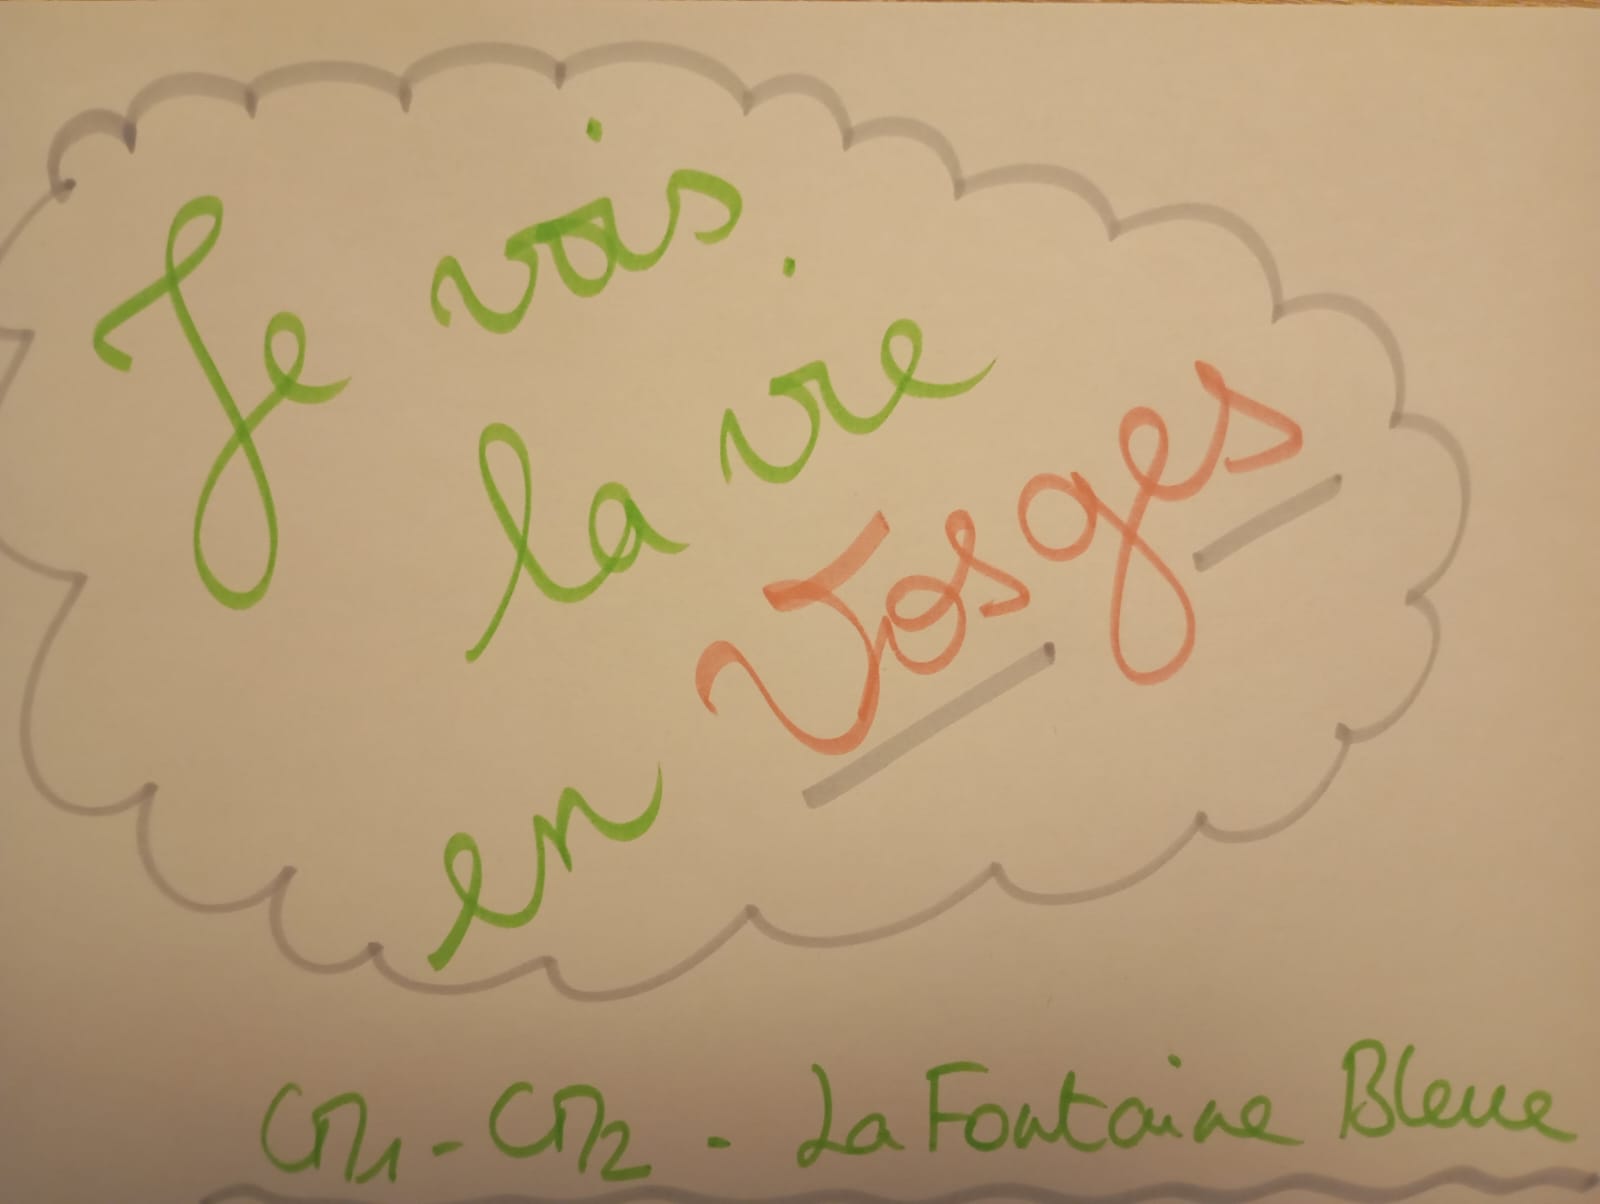 Je vois
la vie
en Vosges
CM1 - CM2 - La Fontaine Bleue